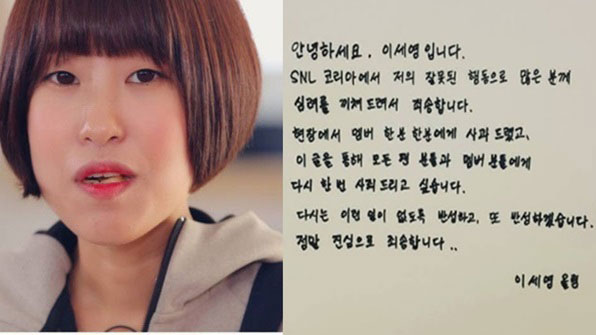 안녕하세요, 이세영입니다.
SNL 코리아에서 저의 잘못된 행동으로 많은 분께
심려를 끼쳐 드려서 죄송합니다.
현장에서 멤버 한분 한분에게 사과 드렸고,
이 글을 통해 모든 팬 분들과 멤버 분들에게
다시 한 번 사죄 드리고 싶습니다.
다시는 이런 일이 없도록 반성하고, 또 반성하겠습니다.
정말 진심으로 죄송합니다..
이세영 올림